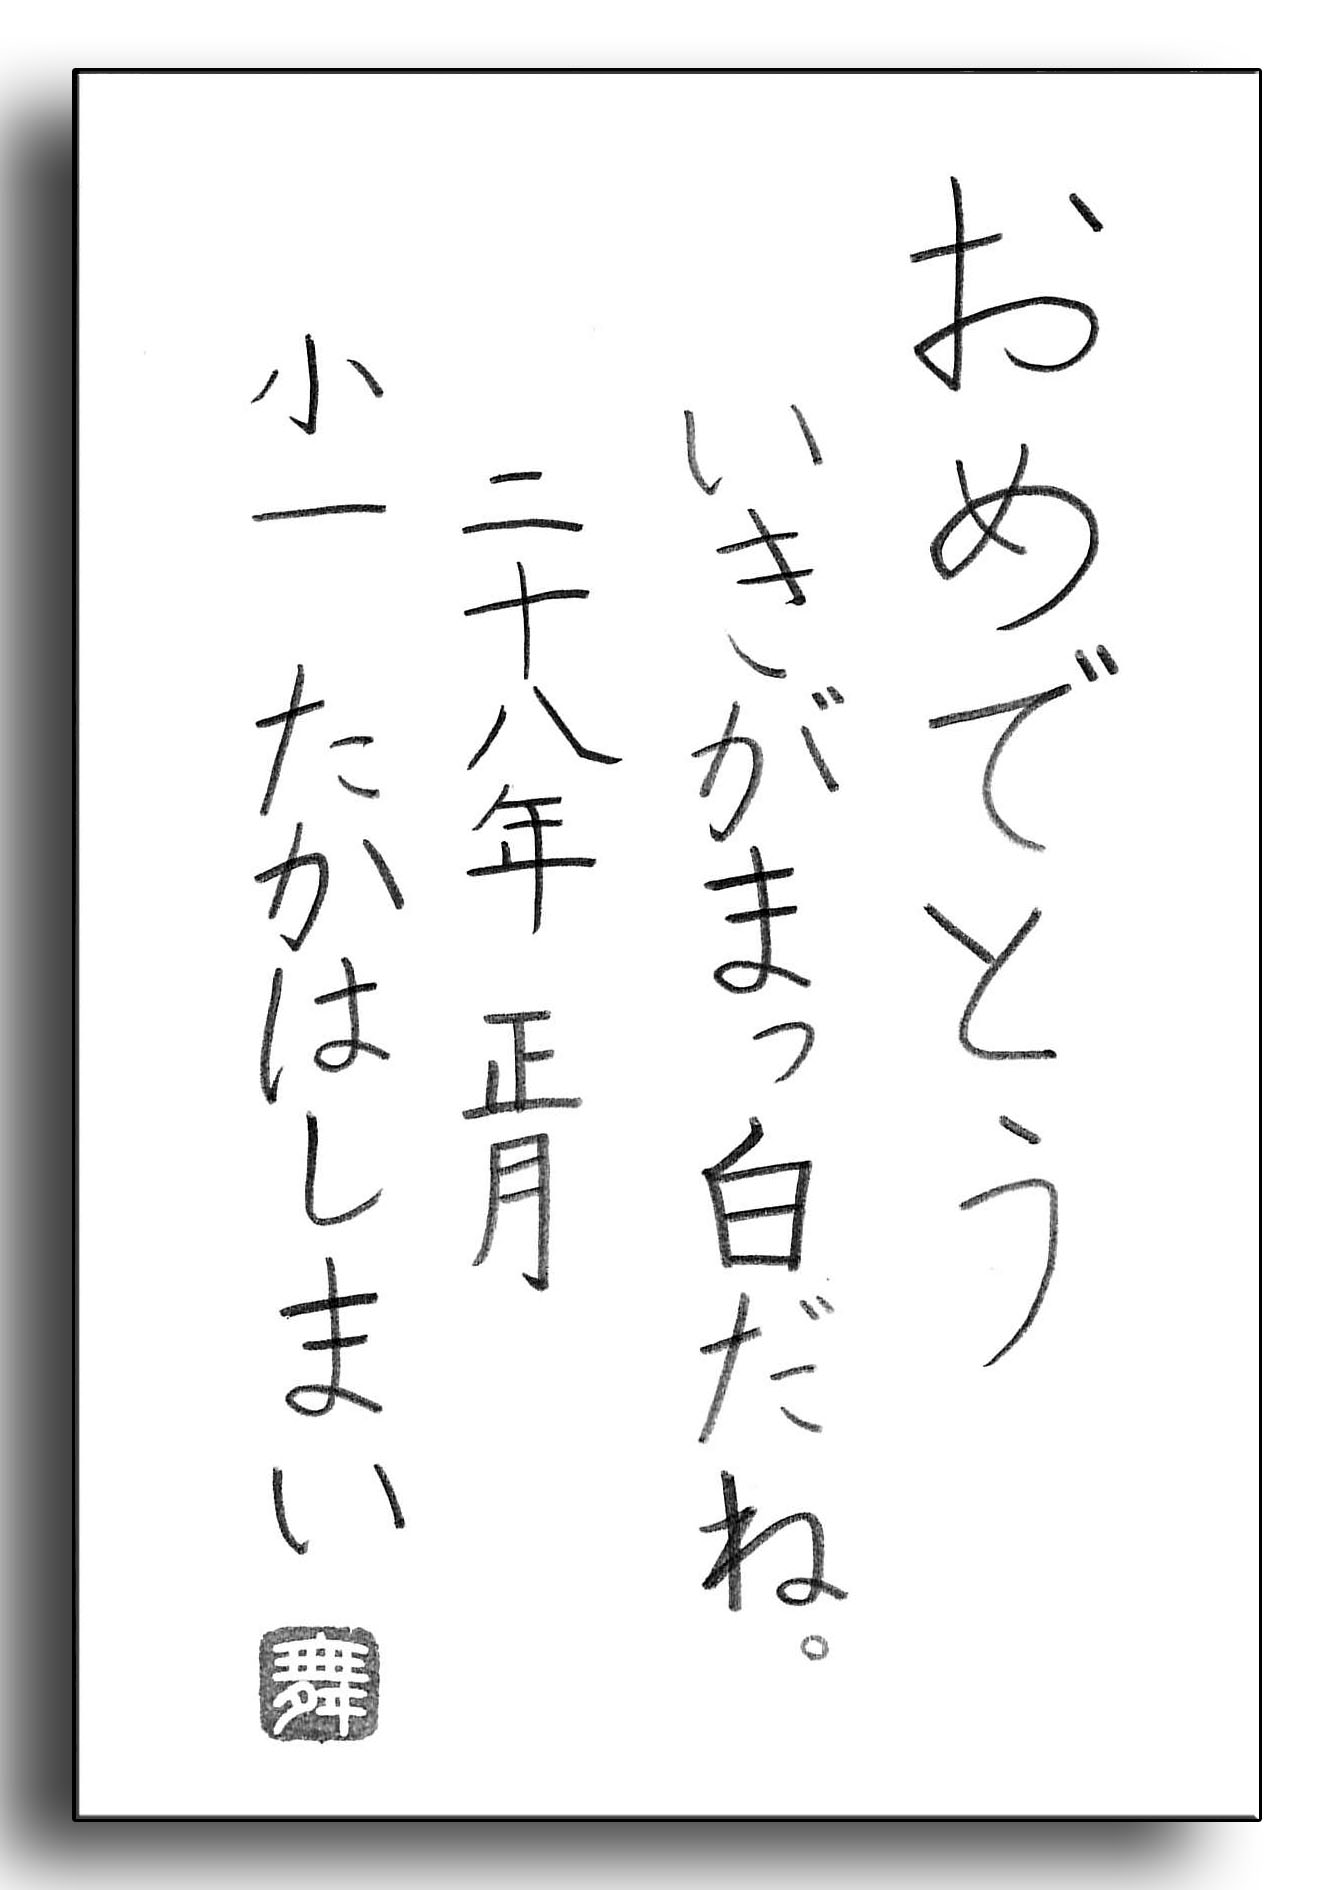 おめでとう
いきがまっ白だね。
二十八年 正月
小一 たかはしまい
舞